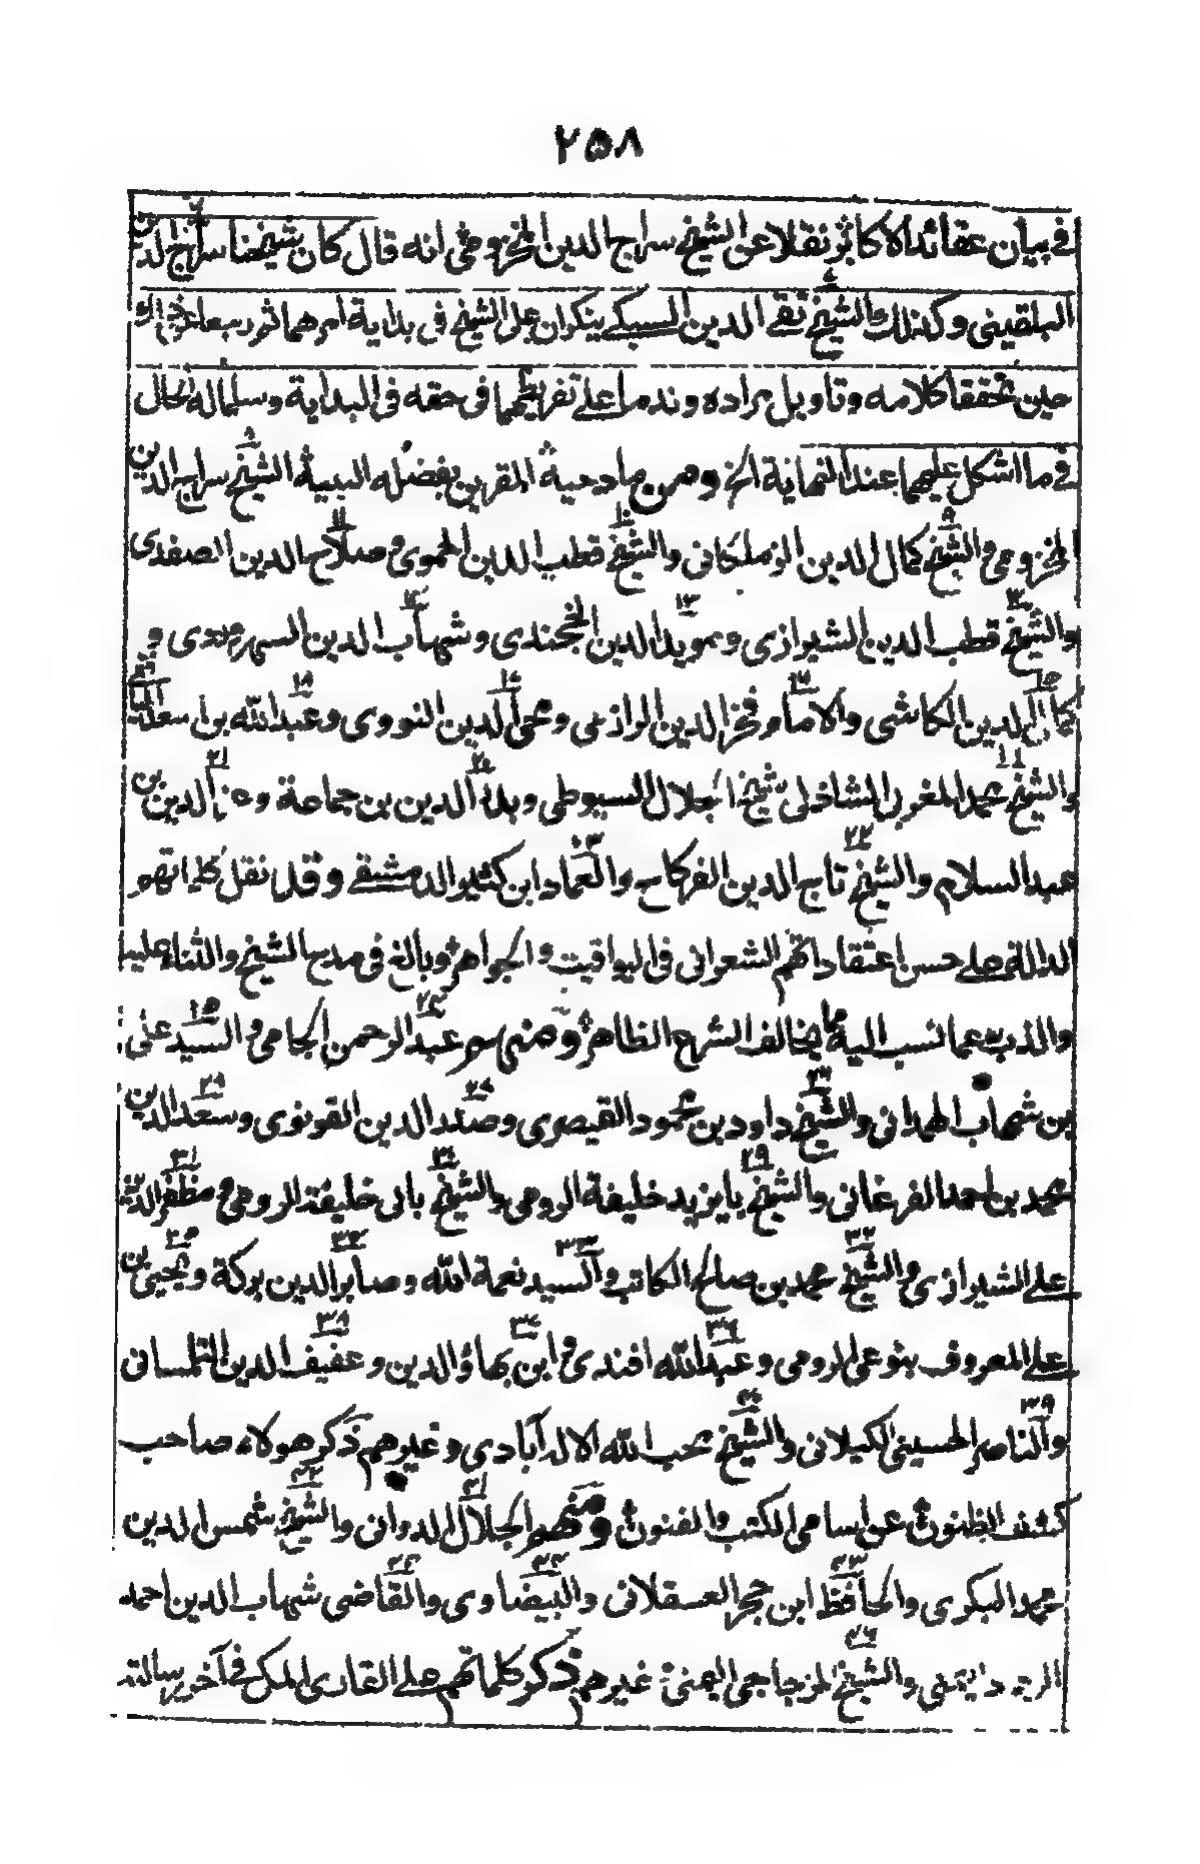 ٢٥٨
في بيان عقائد الاكابر نقلا عن الشيخ سراج الدين المخزومي انه قال كان شيخنا سراج الدين
البلقيني وكذلك الشيخ تقي الدين السبكي ينكران على الشيخ في بداية امرهما ثم رجعا عن ذلك
حين تحققا كلامه وتاويل مراده وندما على تفريطهما في حقه في البداية وسلما له الحال
في ما اشكل عليهما عند النهاية الخ ومن مادحية المقرين بفضله البية الشيخ سراج الدين
المخزومي والشيخ كمال الدين الزملكاني والشيخ قطب الدين الحموي وصلاح الدين الصفدي
والشيخ قطب الدين الشيرازي ومويد الدين الخجندي وشهاب الدين السهروردي و
كمال الدين الكاشي والامام فخر الدين الرازي ومحي الدين النووي وعبد الله بن اسعد اليافعي
والشيخ محمد المغربي الشاذلي شيخ الجلال السيوطي وبدر الدين بن جماعة وعز الدين بن
عبد السلام والشيخ تاج الدين الفركاح والعماد ابن كثير الدمشقي وقد نقل كلماتهم
الدالة على حسن اعتقاداتهم الشعراني في اليواقيت والجواهر وبالغ في مدح الشيخ والثناء عليه
والذب عما نسب اليه مما يخالف الشرح الظاهر ومنهم عبد الرحمن الجامي والسيد على
بن شهاب الهمداني والشيخ داود بن محمود القيصري وصدر الدين القونوي وسعد الدين
محمد بن احمد الفرغاني والشيخ بايزيد خليفة الرومي والشيخ بالى خليفة الرومي ومظفر الدين
على الشيرازي والشيخ محمد بن صالح الكاتب والسيد نعمة الله وصابر الدين بركة ويحيى بن
على المعروف بنوعي الرومي وعبد الله افندي وابن بهاؤ الدين وعفيف الدين التلمساني
والناصر الحسيني الكيلاني والشيخ محب الله الاله آبادي وغيرهم ذكر هولاء صاحب
كشف الظنون عن اسامي الكتب والفنون ومنهم الجلال الدواني والشيخ شمس الدين
محمد البكري والحافظ ابن حجر العسقلاني والبيضاوي والقاضي شهاب الدين احمد
والشيخ المزجاجي اليمني غيرهم ذكر كلماتهم على القاري المكي في آخر رسالته